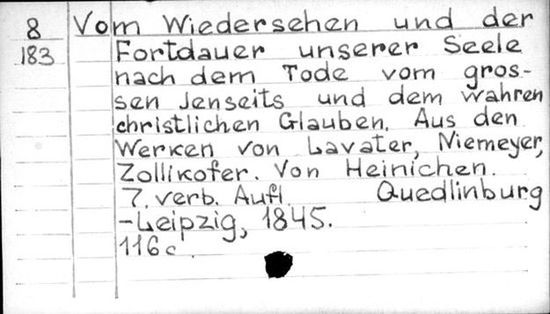 8 Vom Wiedersehen und der
183 Fortdauer unserer Seele
nach dem Tode vom gros-
sen Jenseits und dem wahren
christlichen Glauben. Aus den
Werken von Lavater, Niemeyer,
Zollikofer. Von Heinichen.
7. verb. Aufl. Quedlinburg
-Leipzig, 1845.
116 c.